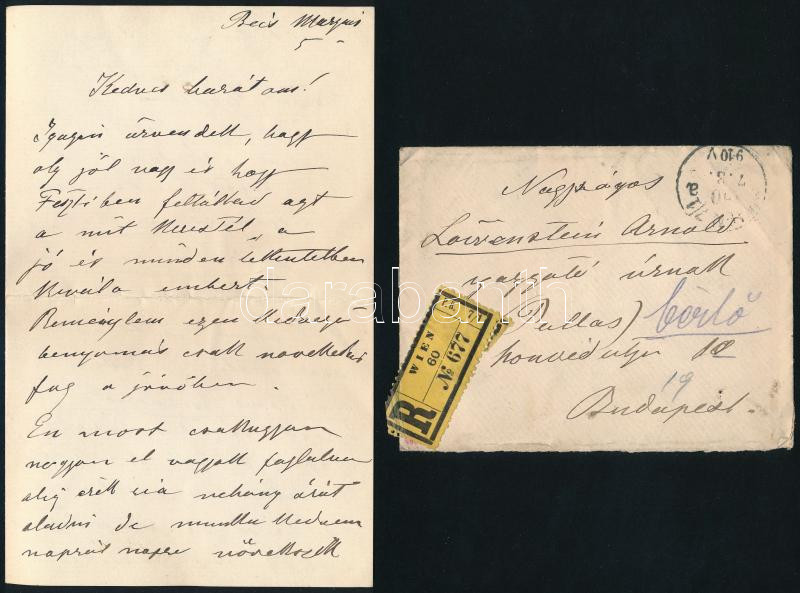 Bécs Marzius
5 -
Kedves barátom!
Igazán örvendek, hogy
oly jól vagy és hogy
Festiben feltaláltad azt
a mit kerestél, a
jó és minden tekintetben
kiváló embert.
Reménylem ezen kedvező
benyomás csak növekedni
fog a jövőben.
Én most csakugyan
nagyon el vagyok foglalva
alig érek rá néhány órát
aludni de munka kedvem
napról napra növekszik
Nagyságos
Löwenstein Arnold
igazgató úrnak
(Pallas) börtő
honvéd utca
19
Budapest.
R
WIEN
60
№ 677
910 V
darabanth.com